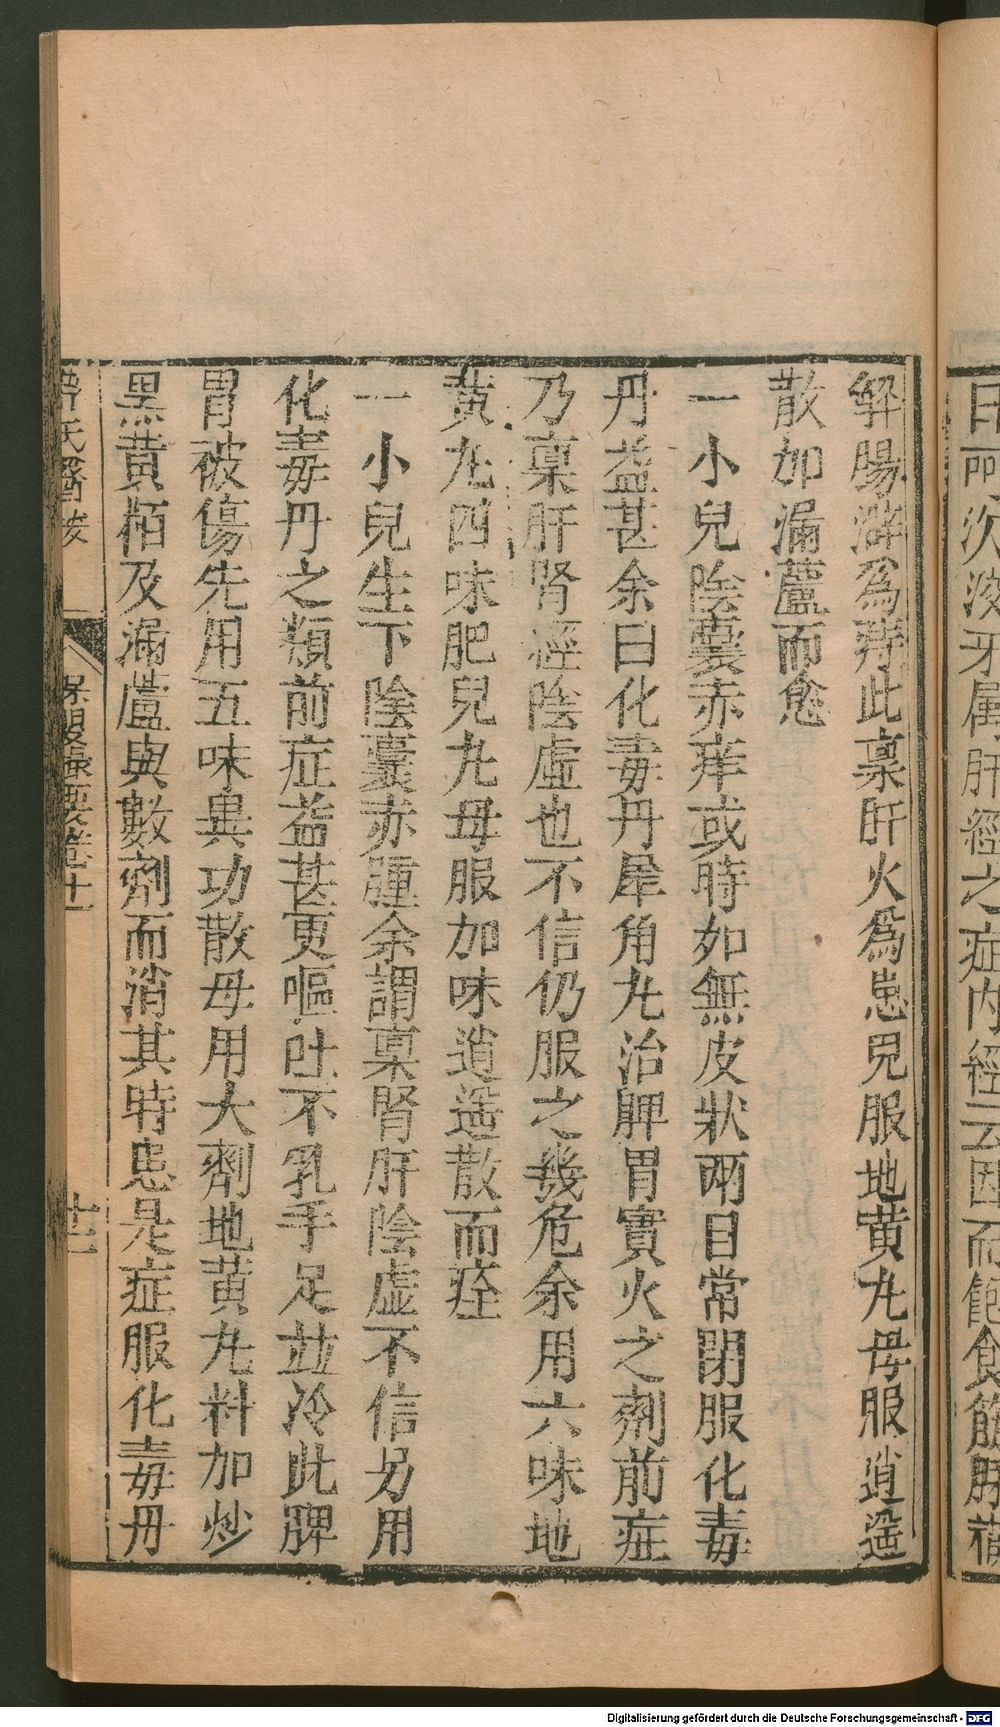 解腸澼為痔此禀肝火為患兒服地黄九母服逍遥
散加漏蘆而愈
一小兒陰囊赤痒或時如無皮狀兩目常閉服化毒
丹益甚余曰化毒丹犀角九治脾胃實火之劑前症
乃禀肝腎經陰虛也不信仍服之幾危余用六味地
黄九四味肥兒九母服加味逍遥散而痊
一小兒生下陰囊赤腫余謂禀腎肝陰虚不信另用
化毒丹之類前症益甚更嘔吐不乳手足並冷此脾
胃被傷先用五味異功散母用大劑地黄九料加炒
黑黄栢及漏蘆與數劑而消其時患是症服化毒丹
薛氏醫按
保嬰撮要卷十一
因而飽食筋脉
Digitalisierung gefördert durch die Deutsche Forschungsgemeinschaft - DFG